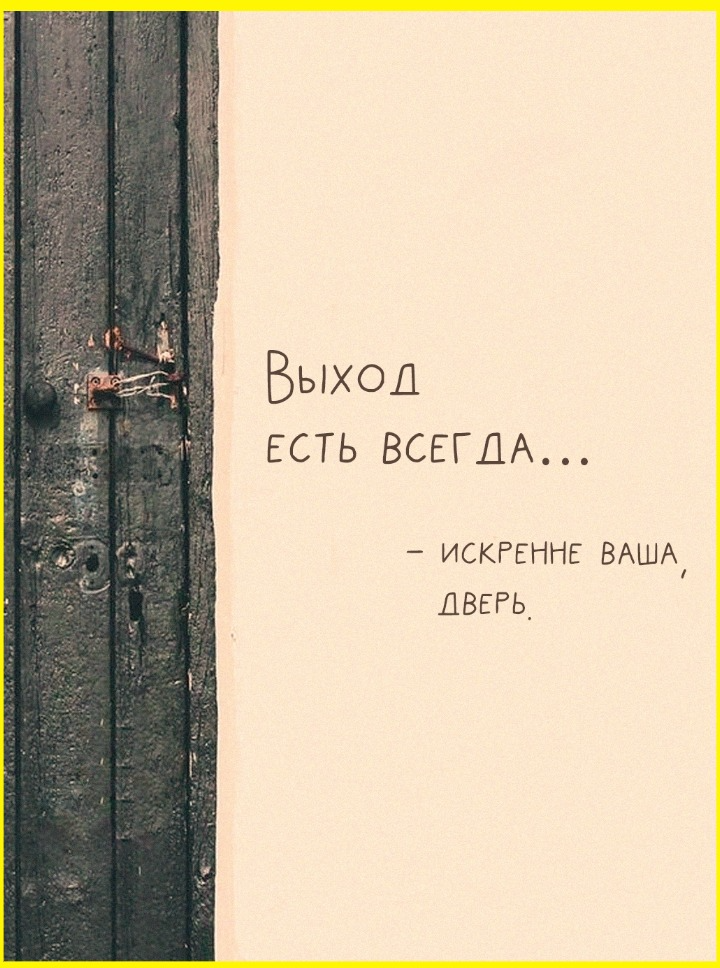 Выход
есть всегда...
– искренне ваша,
дверь.